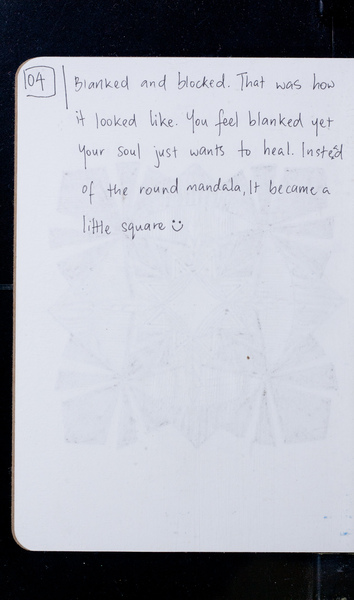 104 Blanked and blocked. That was how
it looked like. You feel blanked yet
your soul just wants to heal. Insted
of the round mandala, It became a
little square :)